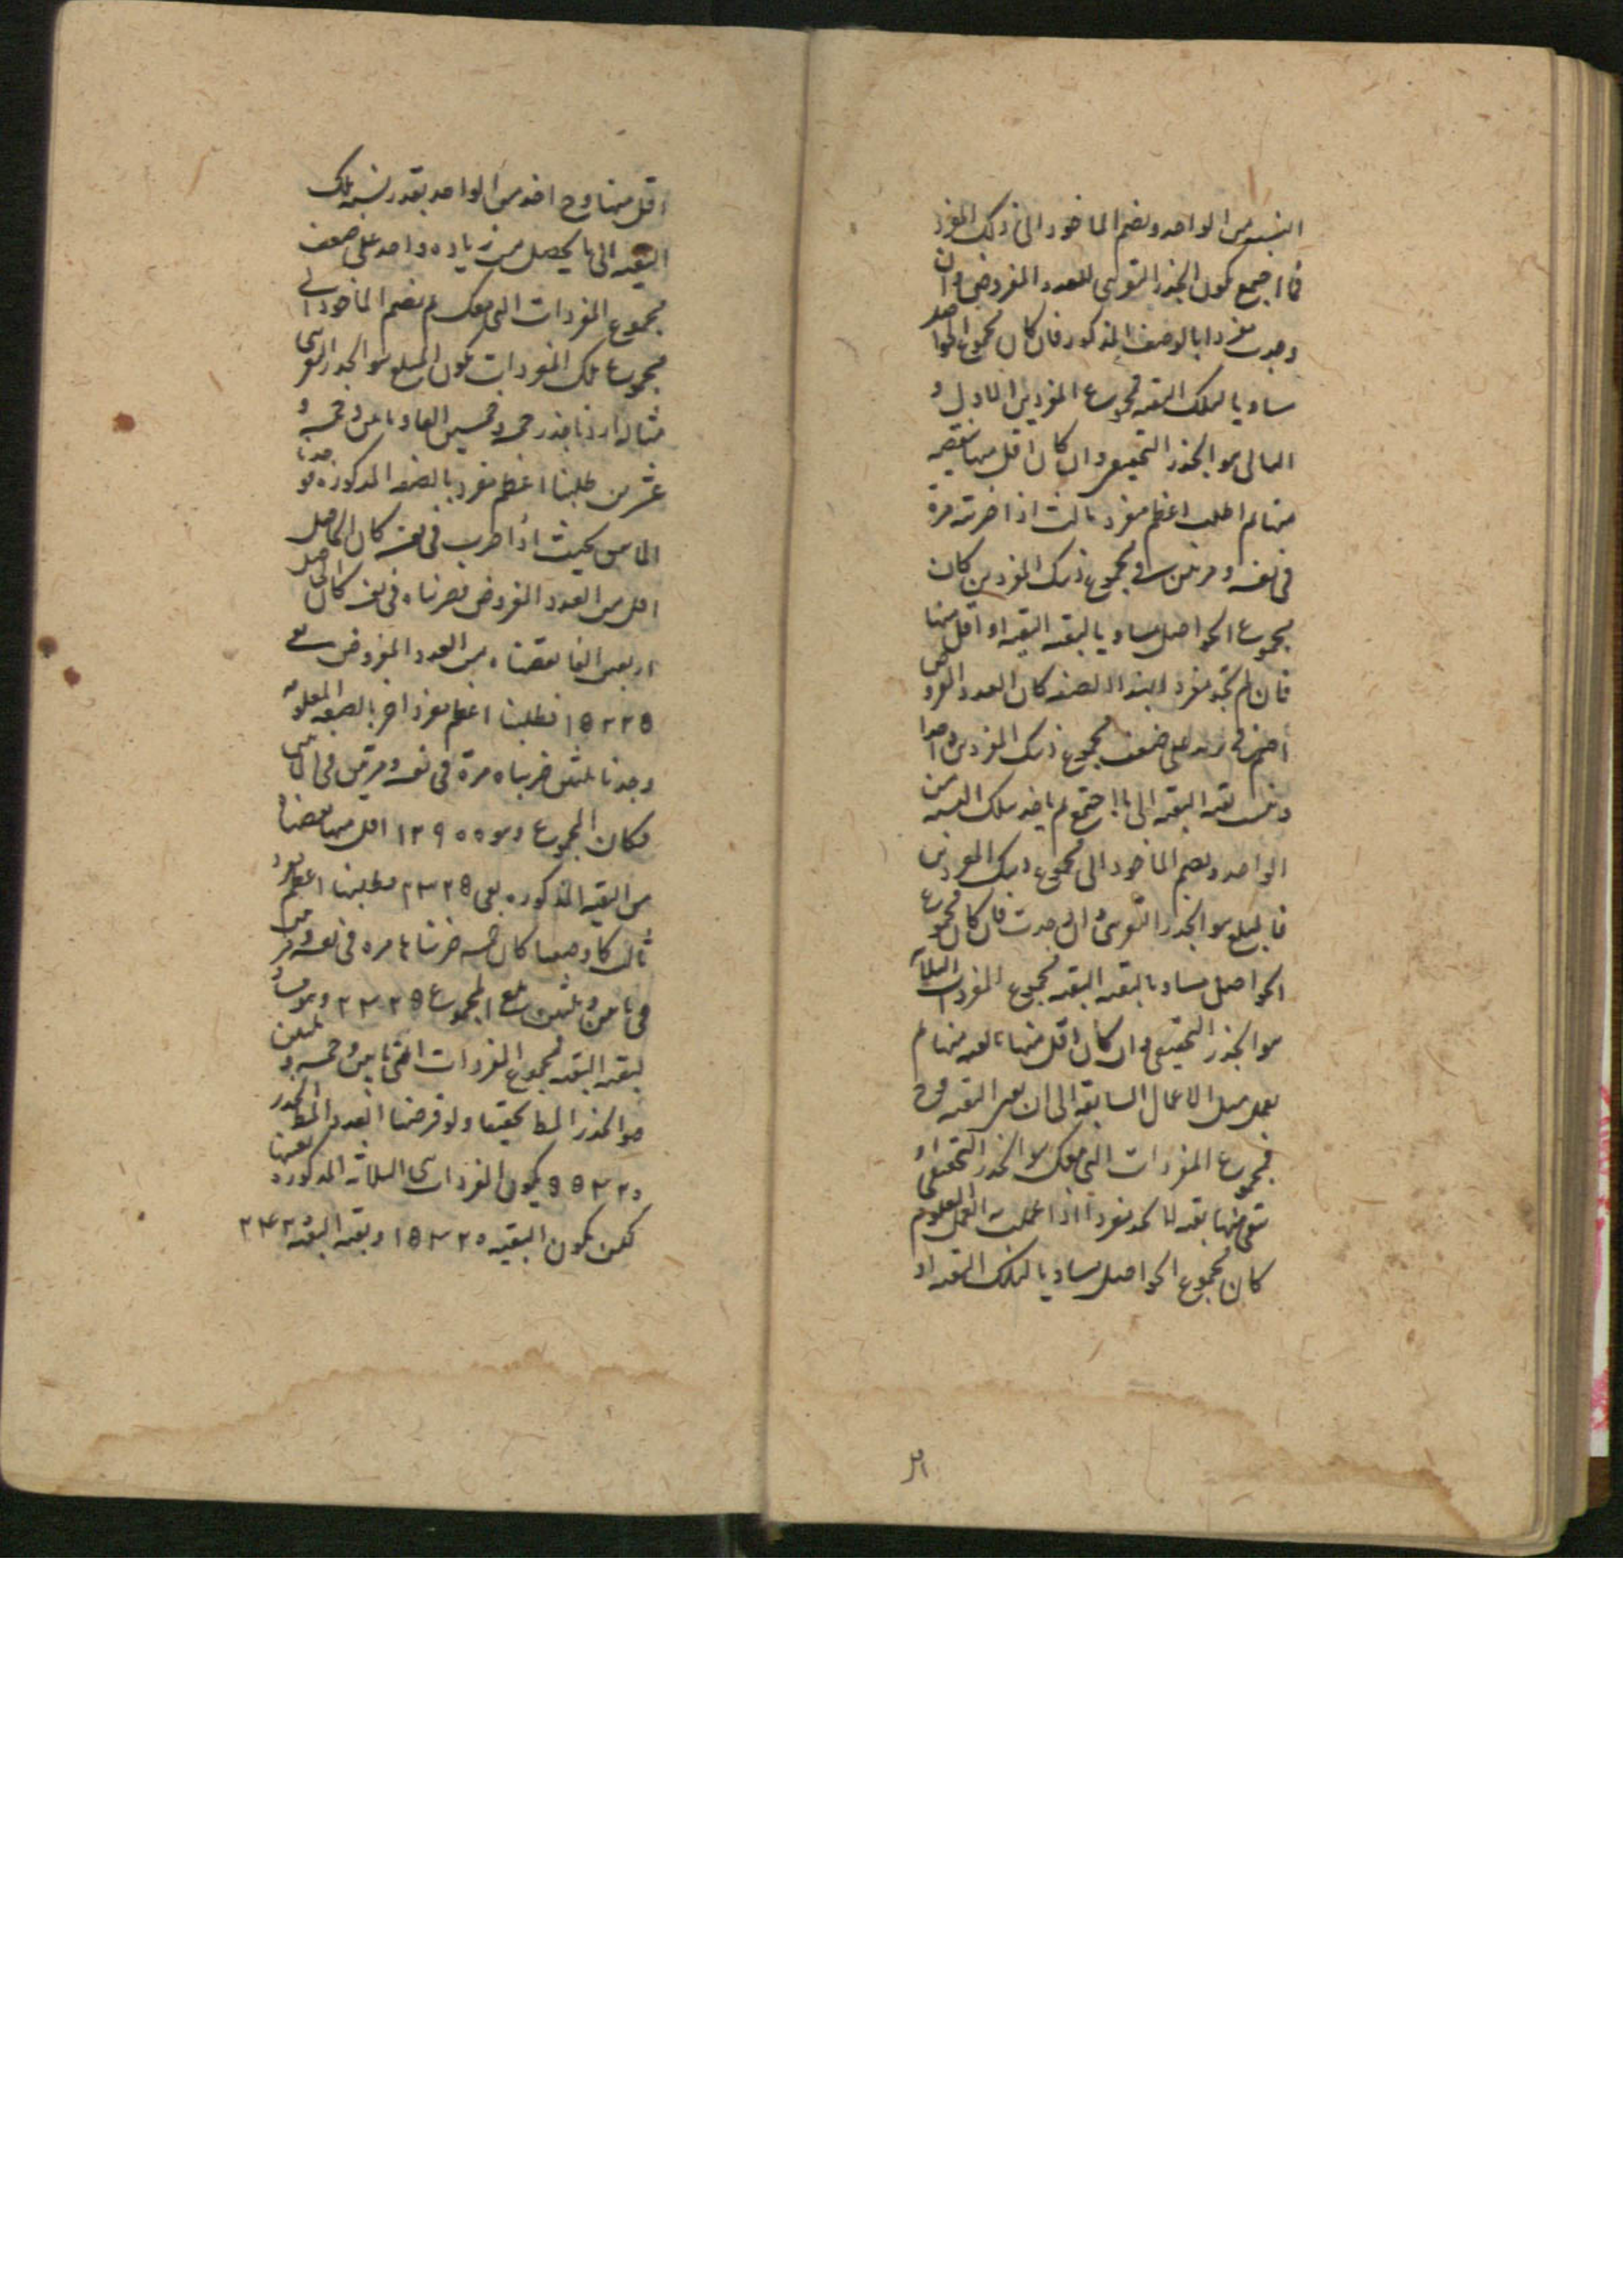 النسبة من الواحد ونضم الماخوذ الى ذلك المفرد
فما اجتمع يكون الجذر التقريبى للعدد المفروض وان
وجدت مفردا بالوصف المذكور فان كان مجموع الحواصل
مساويا لتلك البقيه فمجموع المفردين الاول و
الثانى هو الجذر التحقيقى وان كان اقل منها
منها ثم اطلب اعظم مفرد ثالث اذا ضربته مرة
فى نفسه ومرتين فى مجموع ذينك المفردين كان
مجموع الحواصل مساويا لبقيه البقيه او اقل منها
فان لم تجد مفردا بهذه الصفه كان العدد المفروض
اصم فح نزيد على ضعف مجموع ذينك المفردين واحدا
وننسب بقيه البقيه الى ما اجتمع ثم ناخذ بتلك النسبه من
الواحد ونضم الماخوذ الى مجموع ذينك المفردين
فالمبلغ هو الجذر التقريبى وان وجدت فان كان مجموع
الحواصل مساويا لبقيه البقيه فمجموع المفردات الثلاثه
هو الجذر التحقيقى وان كان اقل منها منها ثم
نعمل مثل الاعمال السابقه الى ان البقيه وح
فمجموع المفردات التى معك هو الجذر التحقيقى او
تبقى منها بقيه لا تجد مفردا اذا عملت به العمل المعلوم
كان مجموع الحواصل مساويا لتلك البقيه او
اقل
اقل منها وح اخذ من الواحد بقدر نسبه تلك
البقيه الى ما يحصل من زياده واحد على ضعف
مجموع المفردات التى معك ثم نضم الماخوذ الى
مجموع تلك المفردات يكون المبلغ هو الجذر التقريبى
مثاله اردنا جذر خمسة وخمسين الفا ومائتين وخمسه و
عشرين طلبنا اعظم مفرد بالصفه المذكوره فوجدنا
المائتين بحيث اذا ضرب فى نفسه كان الحاصل
اقل من العدد المفروض فضربناه فى نفسه كان الحاصل
اربعين الفا نقصناه من العدد المفروض بقى
١٥٢٢٥ فطلبنا اعظم مفرد اخر بالصفه المعلومه
وجدنا ثلثين ضربناه مرة فى نفسه ومرتين فى المائتين
فكان المجموع وهو ١٢٩٠٠ اقل منها نقصناه
من البقيه المذكوره بقى ٢٣٢٥ فطلبنا اعظم مفرد
ثالث كما وصفنا كان خمسه ضربناها مره فى نفسه ومرتين
فى مائتين وثلثين بلغ المجموع ٢٣٢٥ وهو مساو
لبقيه البقيه فمجموع المفردات اعنى مائتين وخمسه وثلثين
هو الجذر المط تحقيقا ولو فرضنا العدد المط الجذر
٥٥٣٢٠ يكون المفردات الثلاثه المذكوره بعينها
لكن يكون البقيه ١٥٣٢٠ وبقيه البقيه ٢٤٢٠